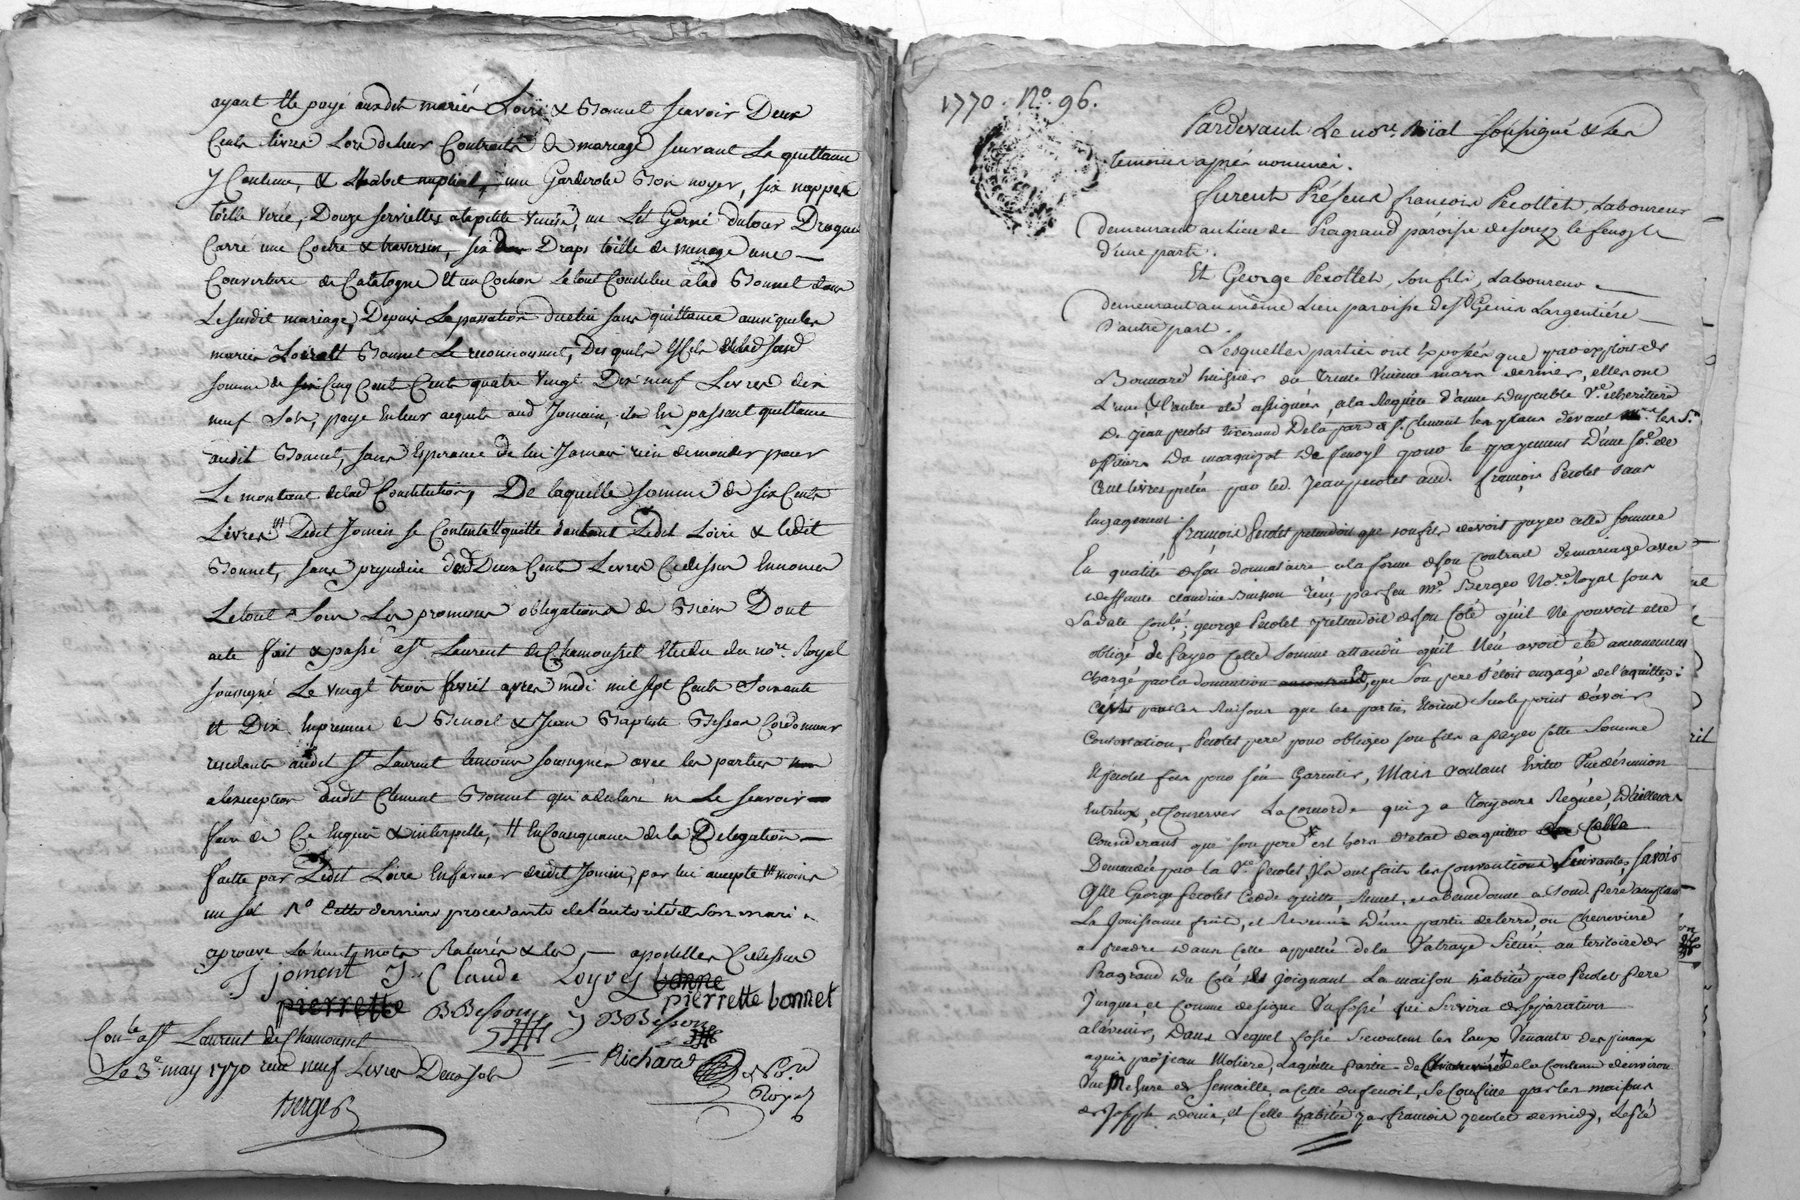 ayant été payé ausdit mariés Loire & Bonnet scavoir Deux
Cents livres Lors de leur Contract de mariage suivant La quittance
y Contenue, & une Garderobe Bois noyer, six nappes
toille Virée, Douze serviettes a la petite Venise, un Lit Garni dutour Droguet
Carré une Coetre & traversin, six Draps toille de menage une
Couverture de Catalogne Et un Cochon Le tout Constitué a lad Bonnet dans
Le susdit mariage, Depuis La passation duquel sans quittance ainsi que les
mariés Loire et Bonnet Le reconnoissent, Desquels
somme de Cinq Cent quatre vingt Dix neuf Livres dix
neuf Sols, payé en leur acquit aud Jomain, en passant quittance
audit Bonnet, sans Esperance de lui Jamais rien demander pour
Le montant de lad Constitution, De laquelle somme de six Cents
Livres Ledit Jomain se Contente et quitte Ledit Loire & ledit
Bonnet, sans prejudice des Deux Cents Livres Cidessus Ennoncés
Le tout Sous Les promesses obligations de Biens Dont
acte fait & passé a St Laurent de Chamousset Etude du no.re Royal
soussigné Le vingt trois Avril apres midi mil sept Cents Soixante
et Dix En presence de Benoit & Jean Baptiste Besson Cordonniers
residants audit St Laurent temoins soussignés avec les parties
a l'exception dudit Clement Bonnet qui a déclaré ne Le scavoir
faire de Ce Enquis & interpellé, Et En Consequance de la Délegation
faitte par Ledit Loire En faveur dudit Jomain, par lui accepté
un sol Cette derniere procedante de l'autorité de son mari
aprouvé Les huit mots Raturés & les apostilles Cidessus
J joment J. Claude Loyres bonne
pierrette BBesson J BBesson pierrette bonnet
Con.lé a St Laurent de Chamousset
Le 3e may 1770 reçu neuf Livres Deux Sols
Richard No.re Royal
Berger
1770. No. 96.
Pardevant Le no.re Roial soussigné & les
temoins après nommés.
furent Présens françois Pecollet, Laboureur
demeurant au lieu de Pragrand paroisse de le fenoyl
d'une part.
Et George Pecollet, son fils, Laboureur
demeurant au même Lieu paroisse de St Genis Largentière
D'autre part.
Lesquelles parties ont Exposées que par exploit de
Bonnard huissier du Trente Unieme mars dernier, elles ont
L'une & L'autre été assignées, a la Requete d'anne V.e & heritiere
de Jean pecolet De la par de St Clement les places devant les S.rs
officiers Du marquizat De fenoyl pour le payement D'une so.e de
Cent livres pretée par led. Jean pecolet aud. françois Pecolet sans
Engagement. françois Pecolet pretendoit que son fils devoit payer cette somme
En qualité de son donnataire a la forme de son Contract de mariage avec
deffunte claudine Buisson reçu par feu M.e Berger No.re Royal sous
Sa date Con.lé; george Pecolet pretendoit de son Coté qu'il Ne pouvoit etre
obligé de Payer Cette Somme attandu qu'il N'en avoit été aucunement
chargé par la donnation, que son pere s'étoit engagé de l'aquitter;
C'est par Ces Raisons que les parties Etoient sur le point d'avoir
Contestation, Pecolet pere pour obliger son fils a Payer Cette Somme
Et pecolet fils pour s'en Garentir, Mais voulant Eviter Une désunion
Entr'eux, et Conserver La Concorde qui y a Toujours Regnée, D'ailleurs
Considerant que son pere est hors d'etat d'aquitter Celle
Demandée par la V.e Pecolet, Ils ont fait les Conventions Suivantes, Savoir
Que George Pecolet Cedde quitte, Remet, et abandonne a Son d. Pere
La Jouissance fruit, et Revenus D'une partie de terre, ou Cheneviere
a Prendre dans Cette appellée de la Vatraye Située au teritoire de
Pragrand Du Coté Joignant La maison habitée par Pecolet Pere
Jusques et Comme designe Un fossé qui Servira de Separation
a l'avenir, Dans Lequel fossé S'ecoulent les Eaux Venants des
aquis par jean Moliere, Laquelle Partie de de la Contenue d'environ
Une Mesure de Semaille a Celle du fenoil, se Confine par les maisons
de Joseph denis, et Celle habitée par francois pecolet de midy, Le